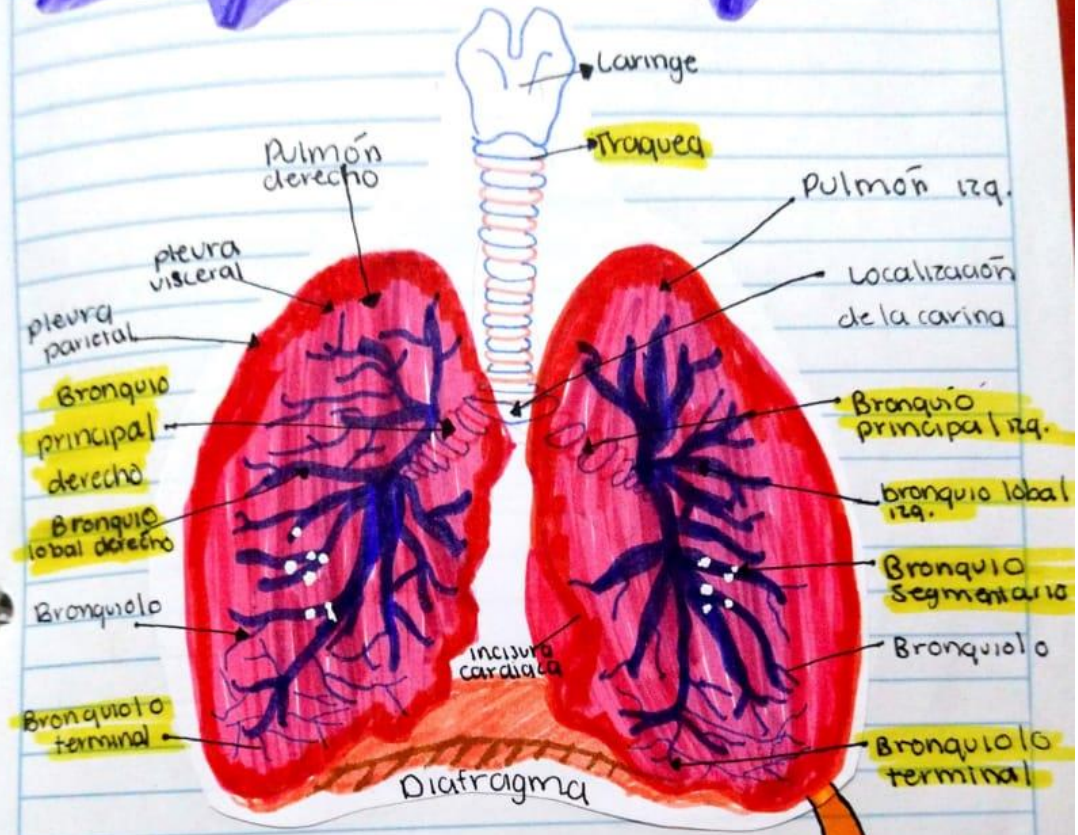 Laringe
Traquea
Pulmón
derecho
Pulmón izq.
pleura
visceral
Localización
de la carina
pleura
parietal
Bronquio
principal
derecho
Bronquio
principal izq.
Bronquio
lobal derecho
bronquio lobal
izq.
Bronquio
Segmentario
Bronquiolo
Bronquiolo
incisura
cardiaca
Bronquiolo
terminal
Bronquiolo
terminal
Diafragma